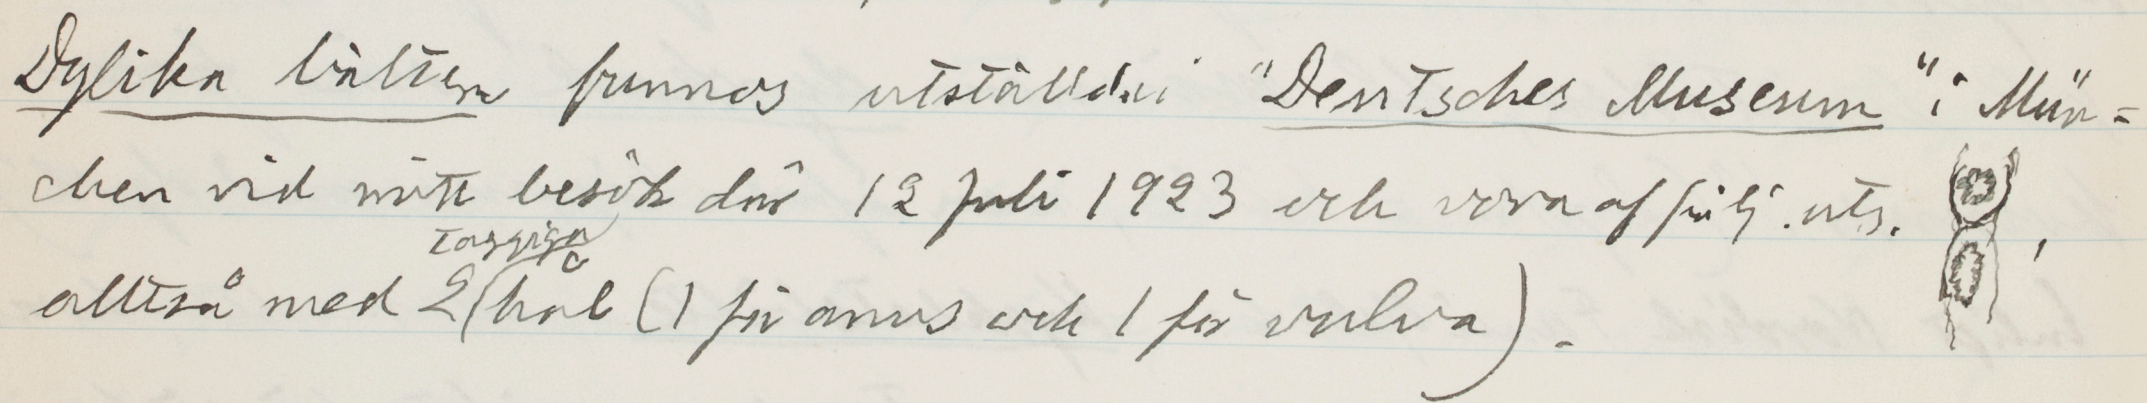 Dylika bälten funnos utställda i "Deutsches Museum" i Mün=
chen vid mitt besök där 12 Juli 1923 och voro af följ. uts.
,
alltså med 2 taggiga hål (1 för anus och 1 för vulva).